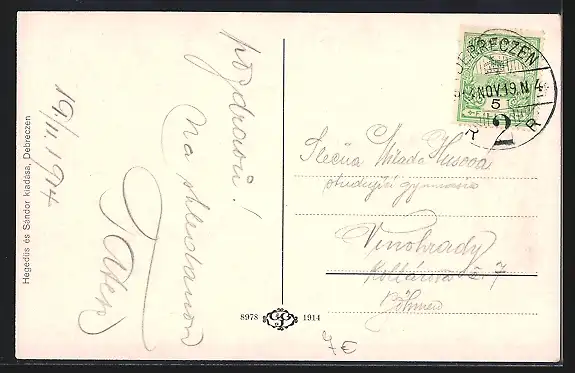 Hegedüs és Sándor kiadása, Debreczen
19/11. 1914
pozdravu!
Na shledanou
Táten
DEBRECZEN
914 NOV. 19. N 4
5
2
R R
Slečna Milada Husova
studující gymnasia
Vinohrady
Kollárova č. 7
Böhmen
8978 1914
7€